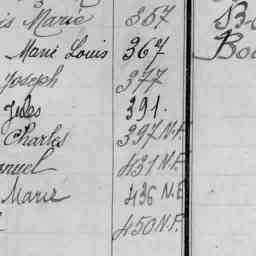 is Marie 367
Marie Louis 367
Joseph 377
Jules 391.
Charles 397 N.F.
anuel 431 N.F.
Marie 436 N.F.
450 N.F.